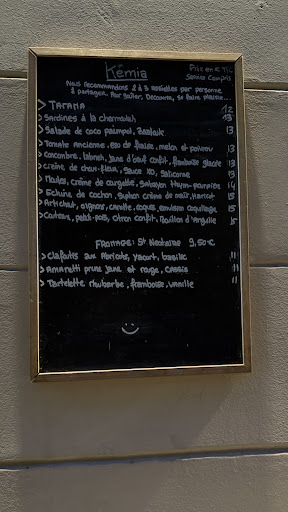 Kémia
Prix en € TTC
Service Compris
Nous recommandons 2 à 3 assiettes par personne
à partager. Par goûter, Découvrir, se faire plaisir...
> Tarama 12
> Sardines à la chermoulah, 13
> Salade de coco paimpol, Zaalouk 13
> Tomate ancienne, eau de fraise, melon et poivron 13
> Concombre, labneh, jaune d'œuf confit, framboise glacée 13
> Crème de chou-fleur, sauce XO, salicorne 13
> Moules, crème de courgette, sabayon thym-pamplemousse 14
> Echine de cochon, siphon crème de maïs, Haricot 15
> Artichaut, oignons, canette, coques, émulsion coquillage 15
> Couteau, petit-pois, citron confit, Bouillon d'Vongole 15
FROMAGE: St Nectaire 9,50€
> Clafoutis aux Abricots, Yaourt, basilic 11
> Amaretti prune jaune et rouge, cassis 11
> Tartelette rhubarbe, framboise, vanille 11